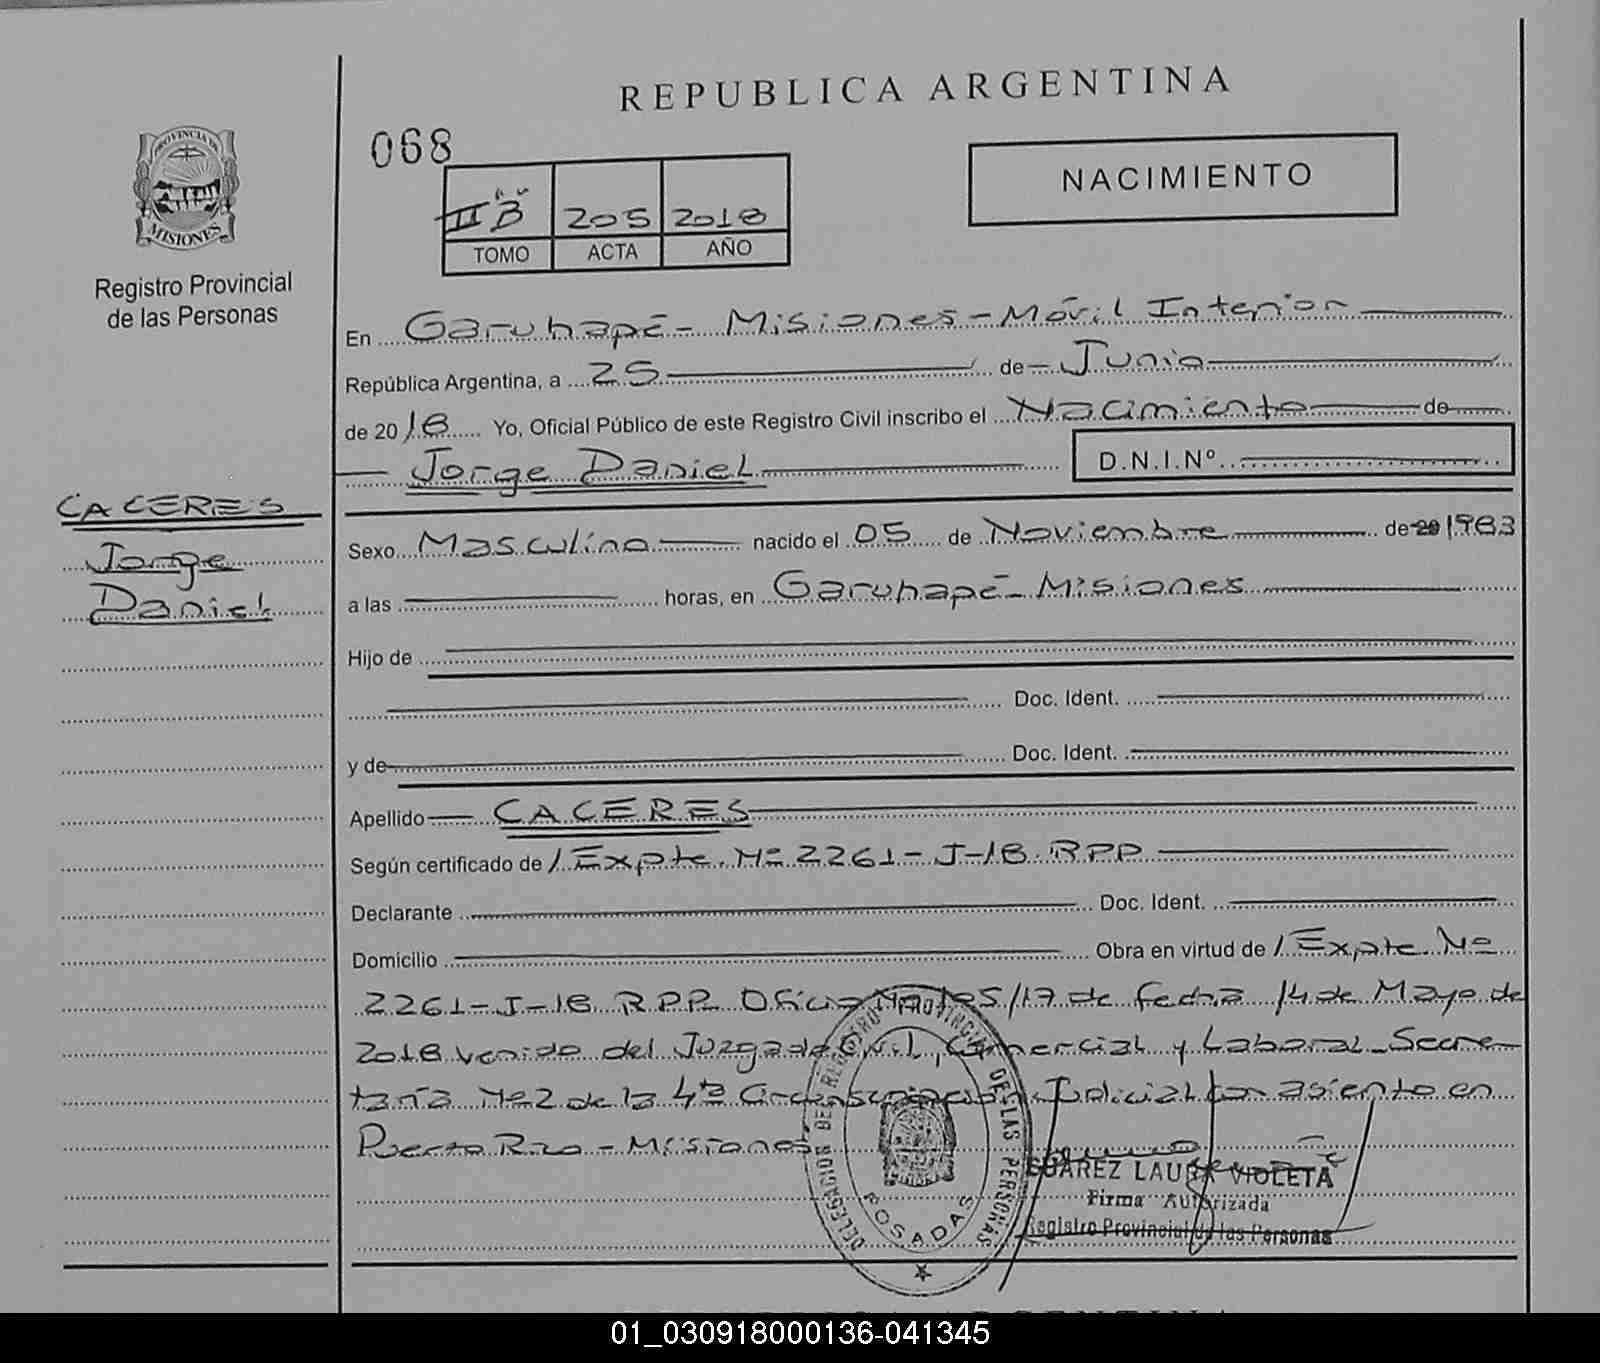 REPUBLICA ARGENTINA
068
NACIMIENTO
II "B" 205 2018
TOMO ACTA AÑO
PROVINCIA DE
MISIONES
Registro Provincial
de las Personas
En Garuhapé - Misiones - Móvil Interior
República Argentina, a 25 de Junio
de 2018 Yo, Oficial Público de este Registro Civil inscribo el Nacimiento de
Jorge Daniel D.N.I.Nº
CACERES
Jorge
Daniel
Sexo Masculino nacido el 05 de Noviembre de 20 1983
a las horas, en Garuhapé - Misiones
Hijo de
Doc. Ident.
y de Doc. Ident.
Apellido CACERES
Según certificado de / Expte. Nº 2261-J-18 RPP
Declarante Doc. Ident.
Domicilio Obra en virtud de / Expte. Nº
2261-J-18 RPP. Oficio Nº 105/17 de fecha 14 de Mayo de
2018 venido del Juzgado Civil, Comercial y Laboral - Secre-
taría Nº 2 de la 4ª Circunscripción Judicial con asiento en
Puerto Rico - Misiones
DELEGACION DE REGISTRO PROVINCIAL DE LAS PERSONAS
POSADAS
SUAREZ LAURA VIOLETA
Firma Autorizada
Registro Provincial de las Personas
01_030918000136-041345